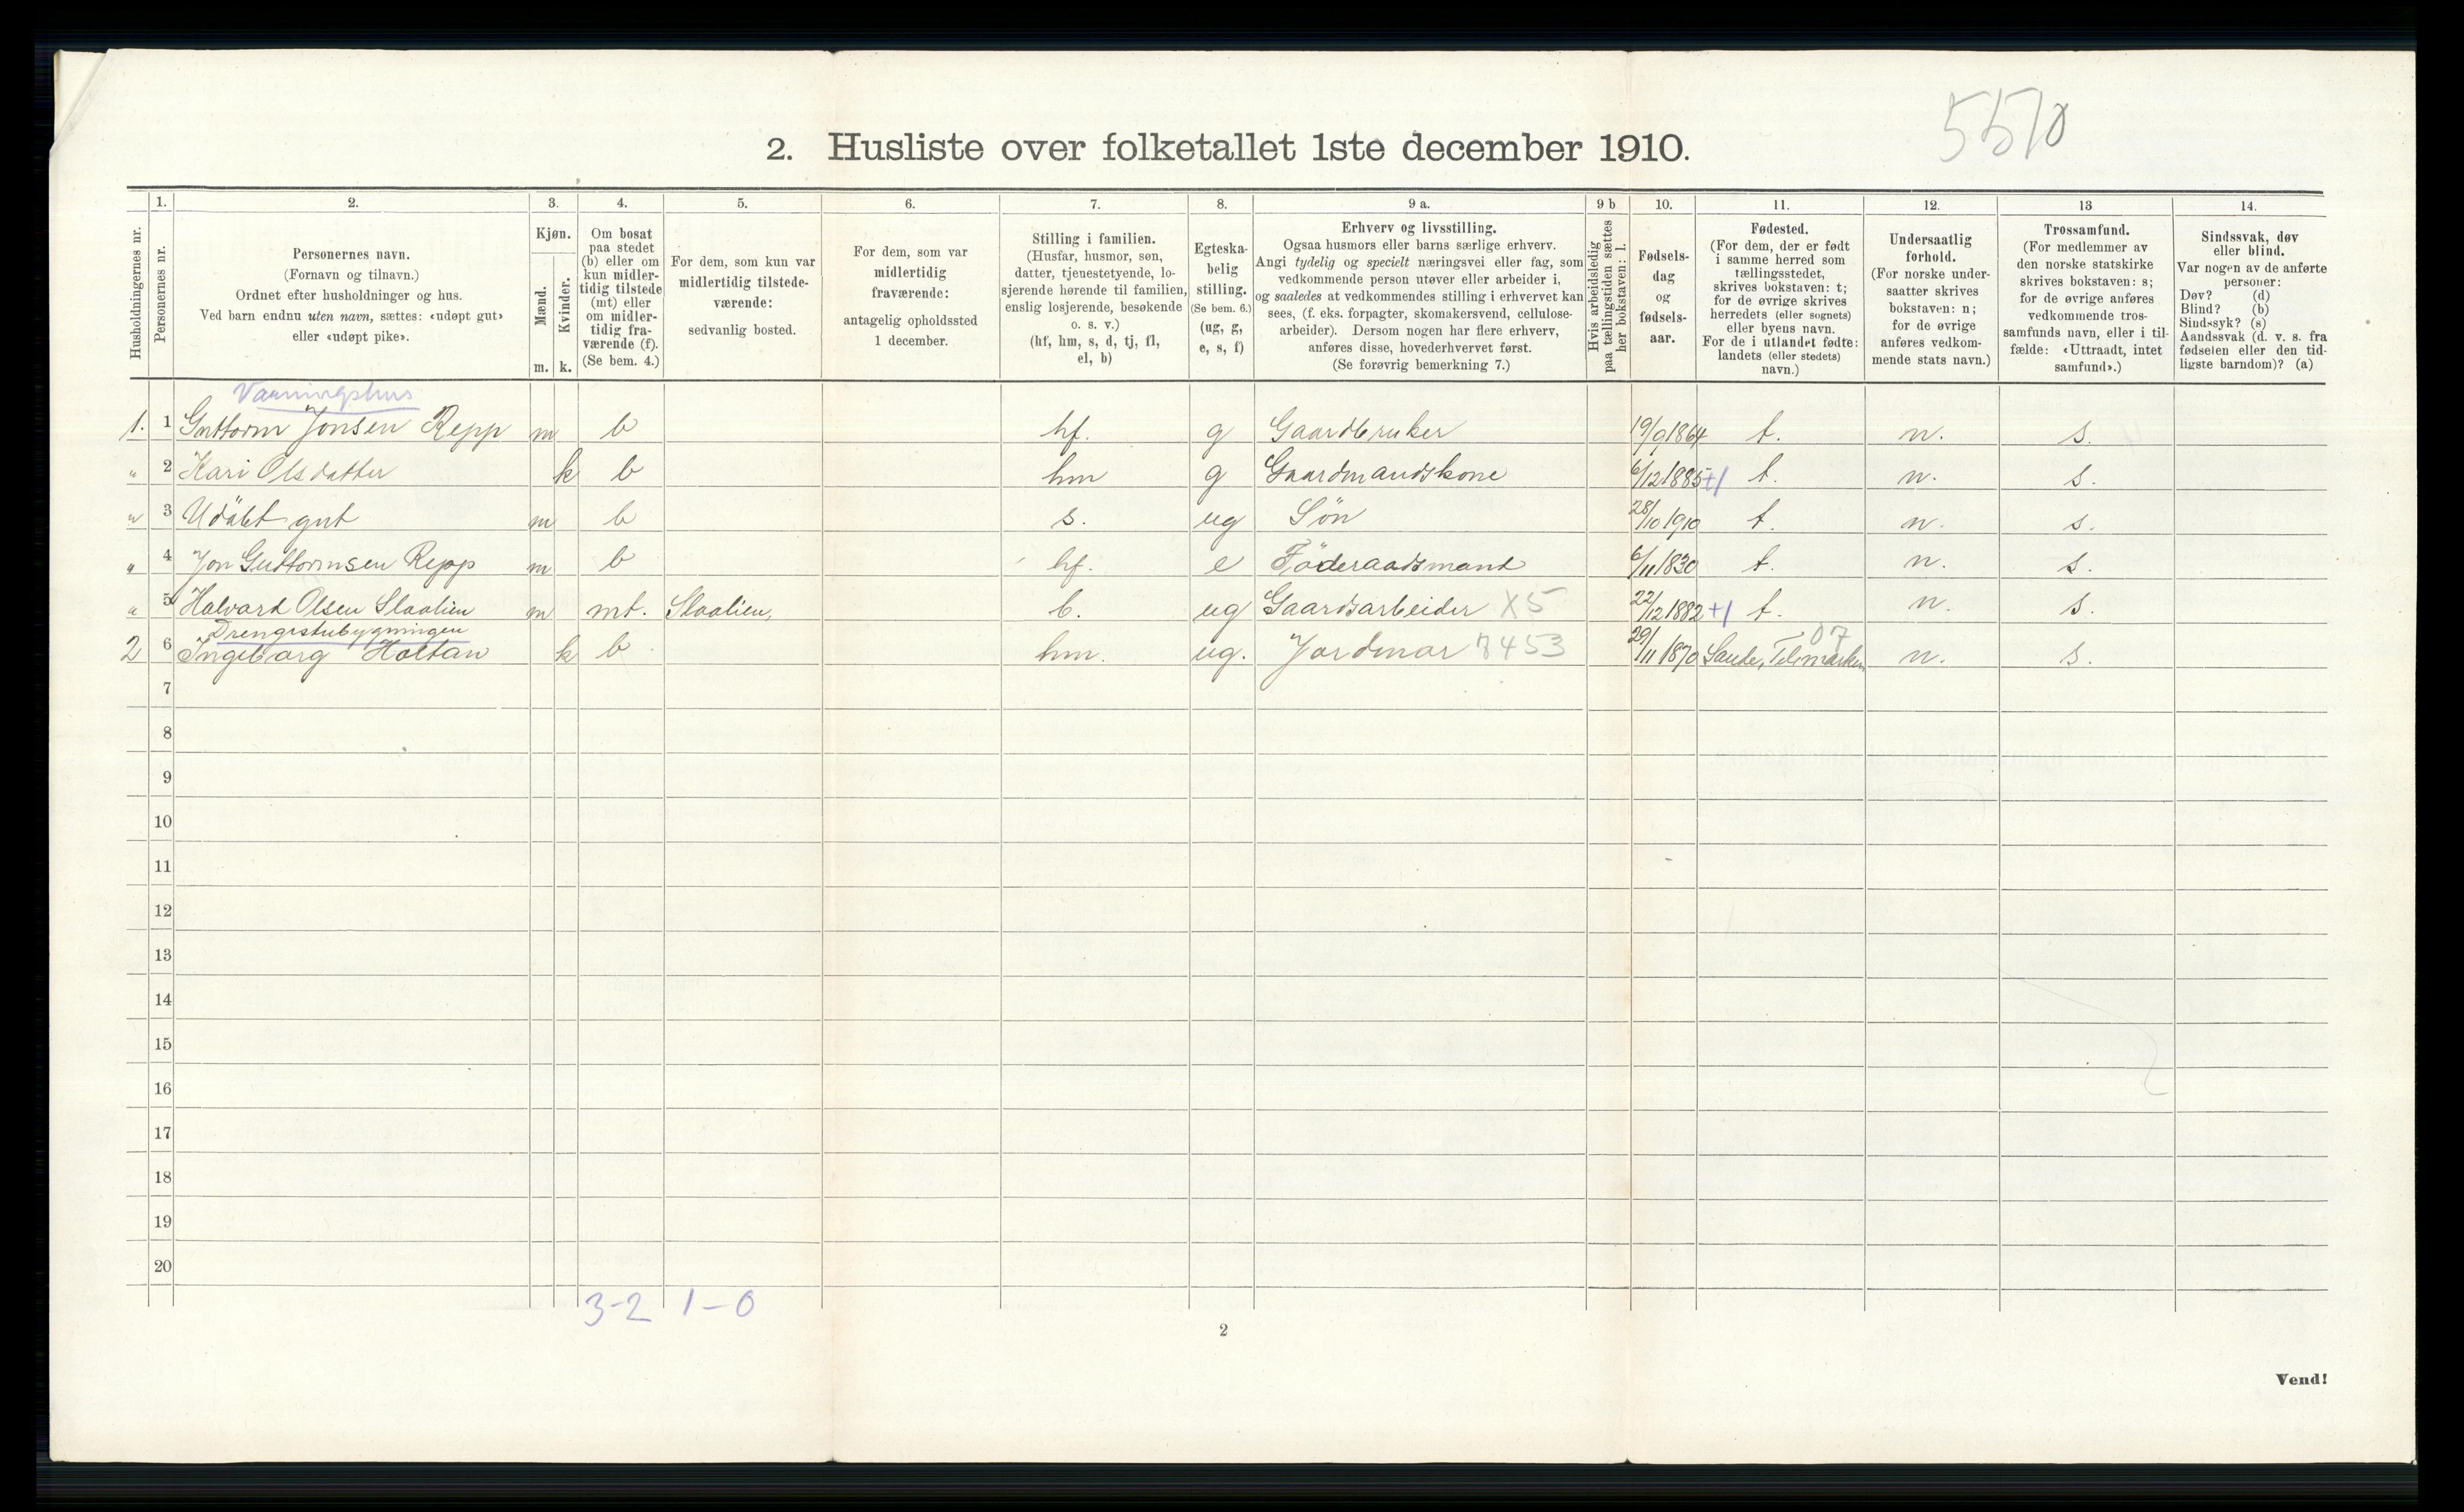 5510
2. Husliste over folketallet 1ste december 1910.
Husholdningernes nr.
1. Personernes nr.
2. Personernes navn.
(Fornavn og tilnavn.)
Ordnet efter husholdninger og hus.
Ved barn endnu uten navn, sættes: «udøpt gut»
eller «udøpt pike».
3. Kjøn.
Mænd. m.
Kvinder. k.
4. Om bosat
paa stedet
(b) eller om
kun midler-
tidig tilstede
(mt) eller
om midler-
tidig fra-
værende (f).
(Se bem. 4.)
5. For dem, som kun var
midlertidig tilstede-
værende:
sedvanlig bosted.
6. For dem, som var
midlertidig
fraværende:
antagelig opholdssted
1 december.
7. Stilling i familien.
(Husfar, husmor, søn,
datter, tjenestetyende, lo-
sjerende hørende til familien,
enslig losjerende, besøkende
o. s. v.)
(hf, hm, s, d, tj, fl,
el, b)
8. Egteska-
belig
stilling.
(Se bem. 6.)
(ug, g,
e, s, f)
9 a. Erhverv og livsstilling.
Ogsaa husmors eller barns særlige erhverv.
Angi tydelig og specielt næringsvei eller fag, som
vedkommende person utøver eller arbeider i,
og saaledes at vedkommendes stilling i erhvervet kan
sees, (f. eks. forpagter, skomakersvend, cellulose-
arbeider). Dersom nogen har flere erhverv,
anføres disse, hovederhvervet først.
(Se forøvrig bemerkning 7.)
9 b Hvis arbeidsledig
paa tællingstiden sættes
her bokstaven: l.
10. Fødsels-
dag
og
fødsels-
aar.
11. Fødested.
(For dem, der er født
i samme herred som
tællingsstedet,
skrives bokstaven: t;
for de øvrige skrives
herredets (eller sognets)
eller byens navn.
For de i utlandet fødte:
landets (eller stedets)
navn.)
12. Undersaatlig
forhold.
(For norske under-
saatter skrives
bokstaven: n;
for de øvrige
anføres vedkom-
mende stats navn.)
13 Trossamfund.
(For medlemmer av
den norske statskirke
skrives bokstaven: s;
for de øvrige anføres
vedkommende tros-
samfunds navn, eller i til-
fælde: «Uttraadt, intet
samfund».)
14. Sindssvak, døv
eller blind.
Var nogen av de anførte
personer:
Døv? (d)
Blind? (b)
Sindssyk? (s)
Aandssvak (d. v. s. fra
fødselen eller den tid-
ligste barndom)? (a)
Vaaningshus
1. 1 Guttorm Jonsen Repp m b hf. g Gaardbruker 19/9 1864 t. n. s.
" 2 Kari Olsdatter k b hm g Gaardmandskone 6/12 1885 +1 t. n. s.
" 3 Udöbt gut m b s. ug Sön 28/10 1910 t. n. s.
" 4 Jon Guttormsen Repp m b hf. e Föderaadsmand 6/11 1830 t. n. s.
" 5 Halvard Olsen Slaalien m mt. Slaalien, b. ug Gaardsarbeider X5 22/12 1882 +1 t. n. s.
Drengestubygningen
2 6 Ingeborg Holtan k b hm. ug. Jordmor 7453 29/11 1870 Saude, Telemarken 07 n. s.
7
8
9
10
11
12
13
14
15
16
17
18
19
20
3-2 1-0
2
Vend!